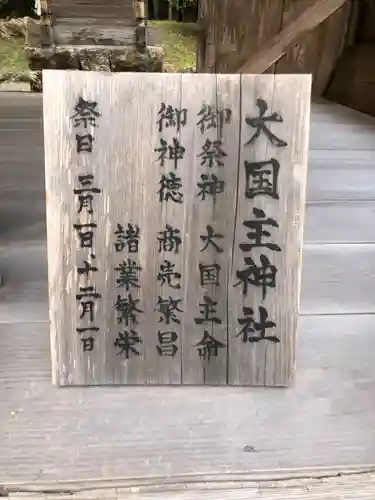 大国主神社
御祭神 大国主命
御神徳 商売繁昌
諸業繁栄
祭日 三月一日、十二月一日